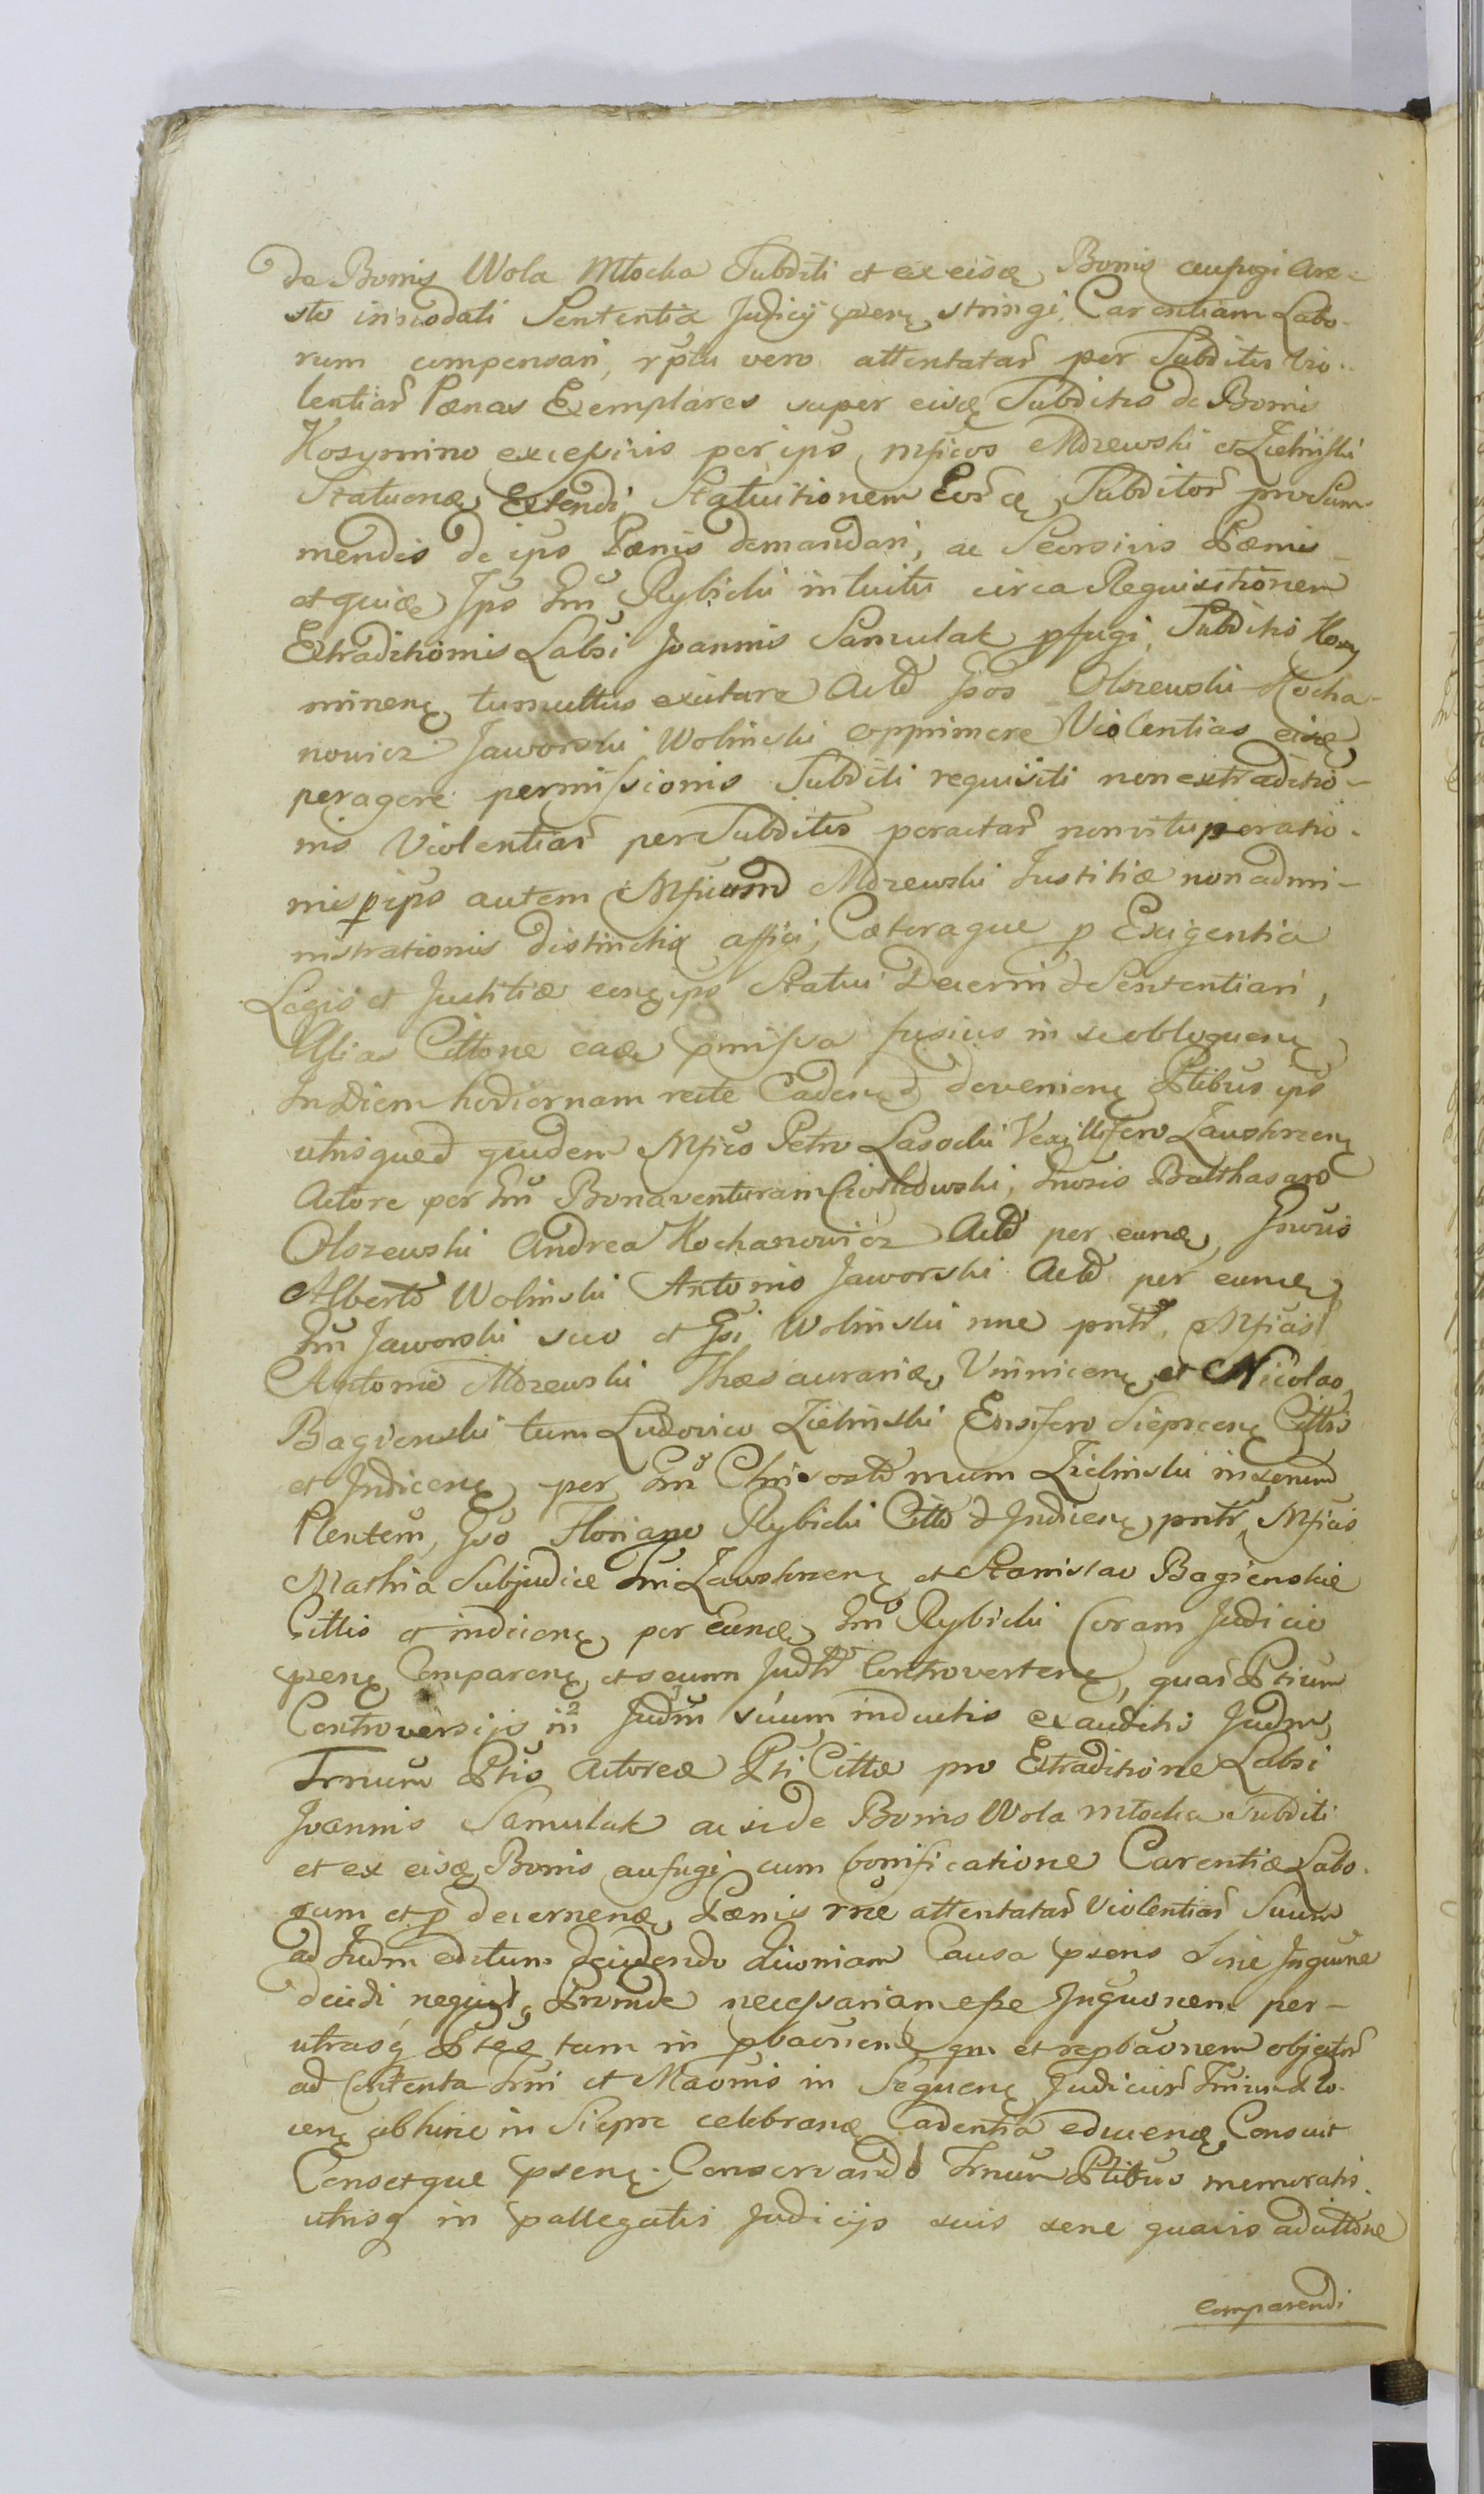 de Bonis Wola Młocka Subditi et ex eisdę Bonis aufugi Are-
sto innodati Sententia Judicij psenę stringi, Carentiam Labo-
rum compensari, rptu vero attentatar̃ per Subditos Vio-
lentiar̃ Pænas Exemplares super eisdę Subditis de Bonis
Kosymino excessivis per ipso Mficos Mdzewski et Zieliński
Statuendę Extendi, Statuitionem Eor̃dę Subditor̃ pro Su-
mendis de ipso Pænis demandari, ac Seorsivis Pænis
et quidę Ipso Gñm Rybicki intuitu circa Requisitionem
Extraditionis Labsi Joannis Samulak pfugi, Subditis Kosy
minenę tumultus excitare Actõ Gsos Olszewski Kocha-
nowicz Jaworski Wolinski opprimere Violentias eisdę
peragere permissionis Subditi requisiti non extraditio-
nis Violentiar̃ per Subditos peractar̃ non vituperatio-
nis p ipso autem Mficum Mdzewski Justitiæ non admi-
nistrationis distinctis affici, Cæteraque p Exigentia
Legis et Justitiæ eenę ipo Statui Decerni et Sententiari,
Alias Cittone eadę pmissa fusius in se obloquenę
In Diem hodiernam recte Cadenę et devenienę Ptibus ipo
utrisque et quidem Mfico Petro Lasocki Vexillifero Zawskrzenę
Actore per Gñm Bonaventuram Ciołkowski, Gnosis Balthasaro
Olszewski Andrea Kochanowicz Actõ per eundę, Gnosis
Alberto Wolinski Antonio Jaworski Actõ per eundę
Gñm Jaworski suo et Gsi Wolinski nne pntr̃, Mficis
Antonio Mdzewski Thesaurariæ Vinnicenę et Nicolao
Bagienski tum Ludovico Zieliński Ensifero Sieprcenę Cittis
et Indicenę per Gñm Chrisostomum Zieliński
Plentem, Gso Floriano Rybicki Citto et Indicenę pntr̃, Mficis
Mathia Subjudice Tri Zawskrzenę et Stanislao Bagienskie
Cittis et indicenę per Eundę Gñm Rybicki Coram Judicio
psenę Comparenę et secum Judtr̃ Controvertenę, quar̃ Ptium
Controversijs in Judm̃ suum inductis exauditis Judm̃
Trnum Ptis Actoreæ Pti Cittæ pro Extraditione Labsi
Joannis Samulak ac si de Bonis Wola Młocka Subditi
et ex eisdę Bonis aufugi cum bonificatione Carentiæ Labo-
rum et p decernendę Pænis rne attentatar̃ Violentiar̃ Suum
ad Judm̃ editum decidendo Quoniam Causa psens Sine Inquine
decidi nequit, Proinde necessariam esse Inquonem per
utrasq Ptes tam in pbaonem qm et repbaonem objector̃
ad Contenta Tri et Maonis in Sequenę Judicior̃ Trium Lo-
cenę abhinc in Sieprc celebrandę Cadentia educendę Consuit
Censetque psenę. Conservando Trnum Ptibus memoratis
utrisq in pallegatis Judicijs suis sene quavis adcittone
comparendi